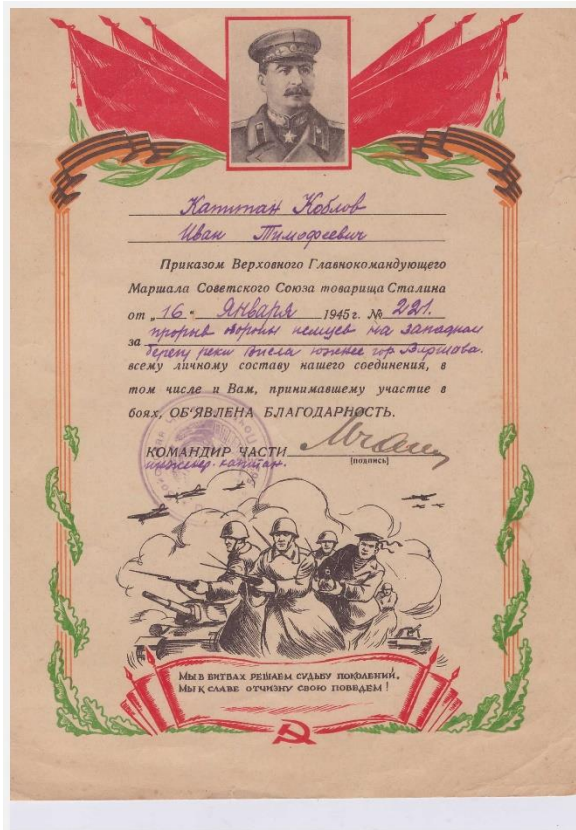 Капитан Коблов
Иван Тимофеевич
Приказом Верховного Главнокомандующего
Маршала Советского Союза товарища Сталина
от „16“ Января 1945 г. № 221.
за прорыв обороны немцев на западном
берегу реки Висла южнее гор Варшава.
всему личному составу нашего соединения, в
том числе и Вам, принимавшему участие в
боях, ОБ'ЯВЛЕНА БЛАГОДАРНОСТЬ.
КОМАНДИР ЧАСТИ
инженер-капитан.
(подпись)
МЫ В БИТВАХ РЕШАЕМ СУДЬБУ ПОКОЛЕНИЙ,
МЫ К СЛАВЕ ОТЧИЗНУ СВОЮ ПОВЕДЕМ!